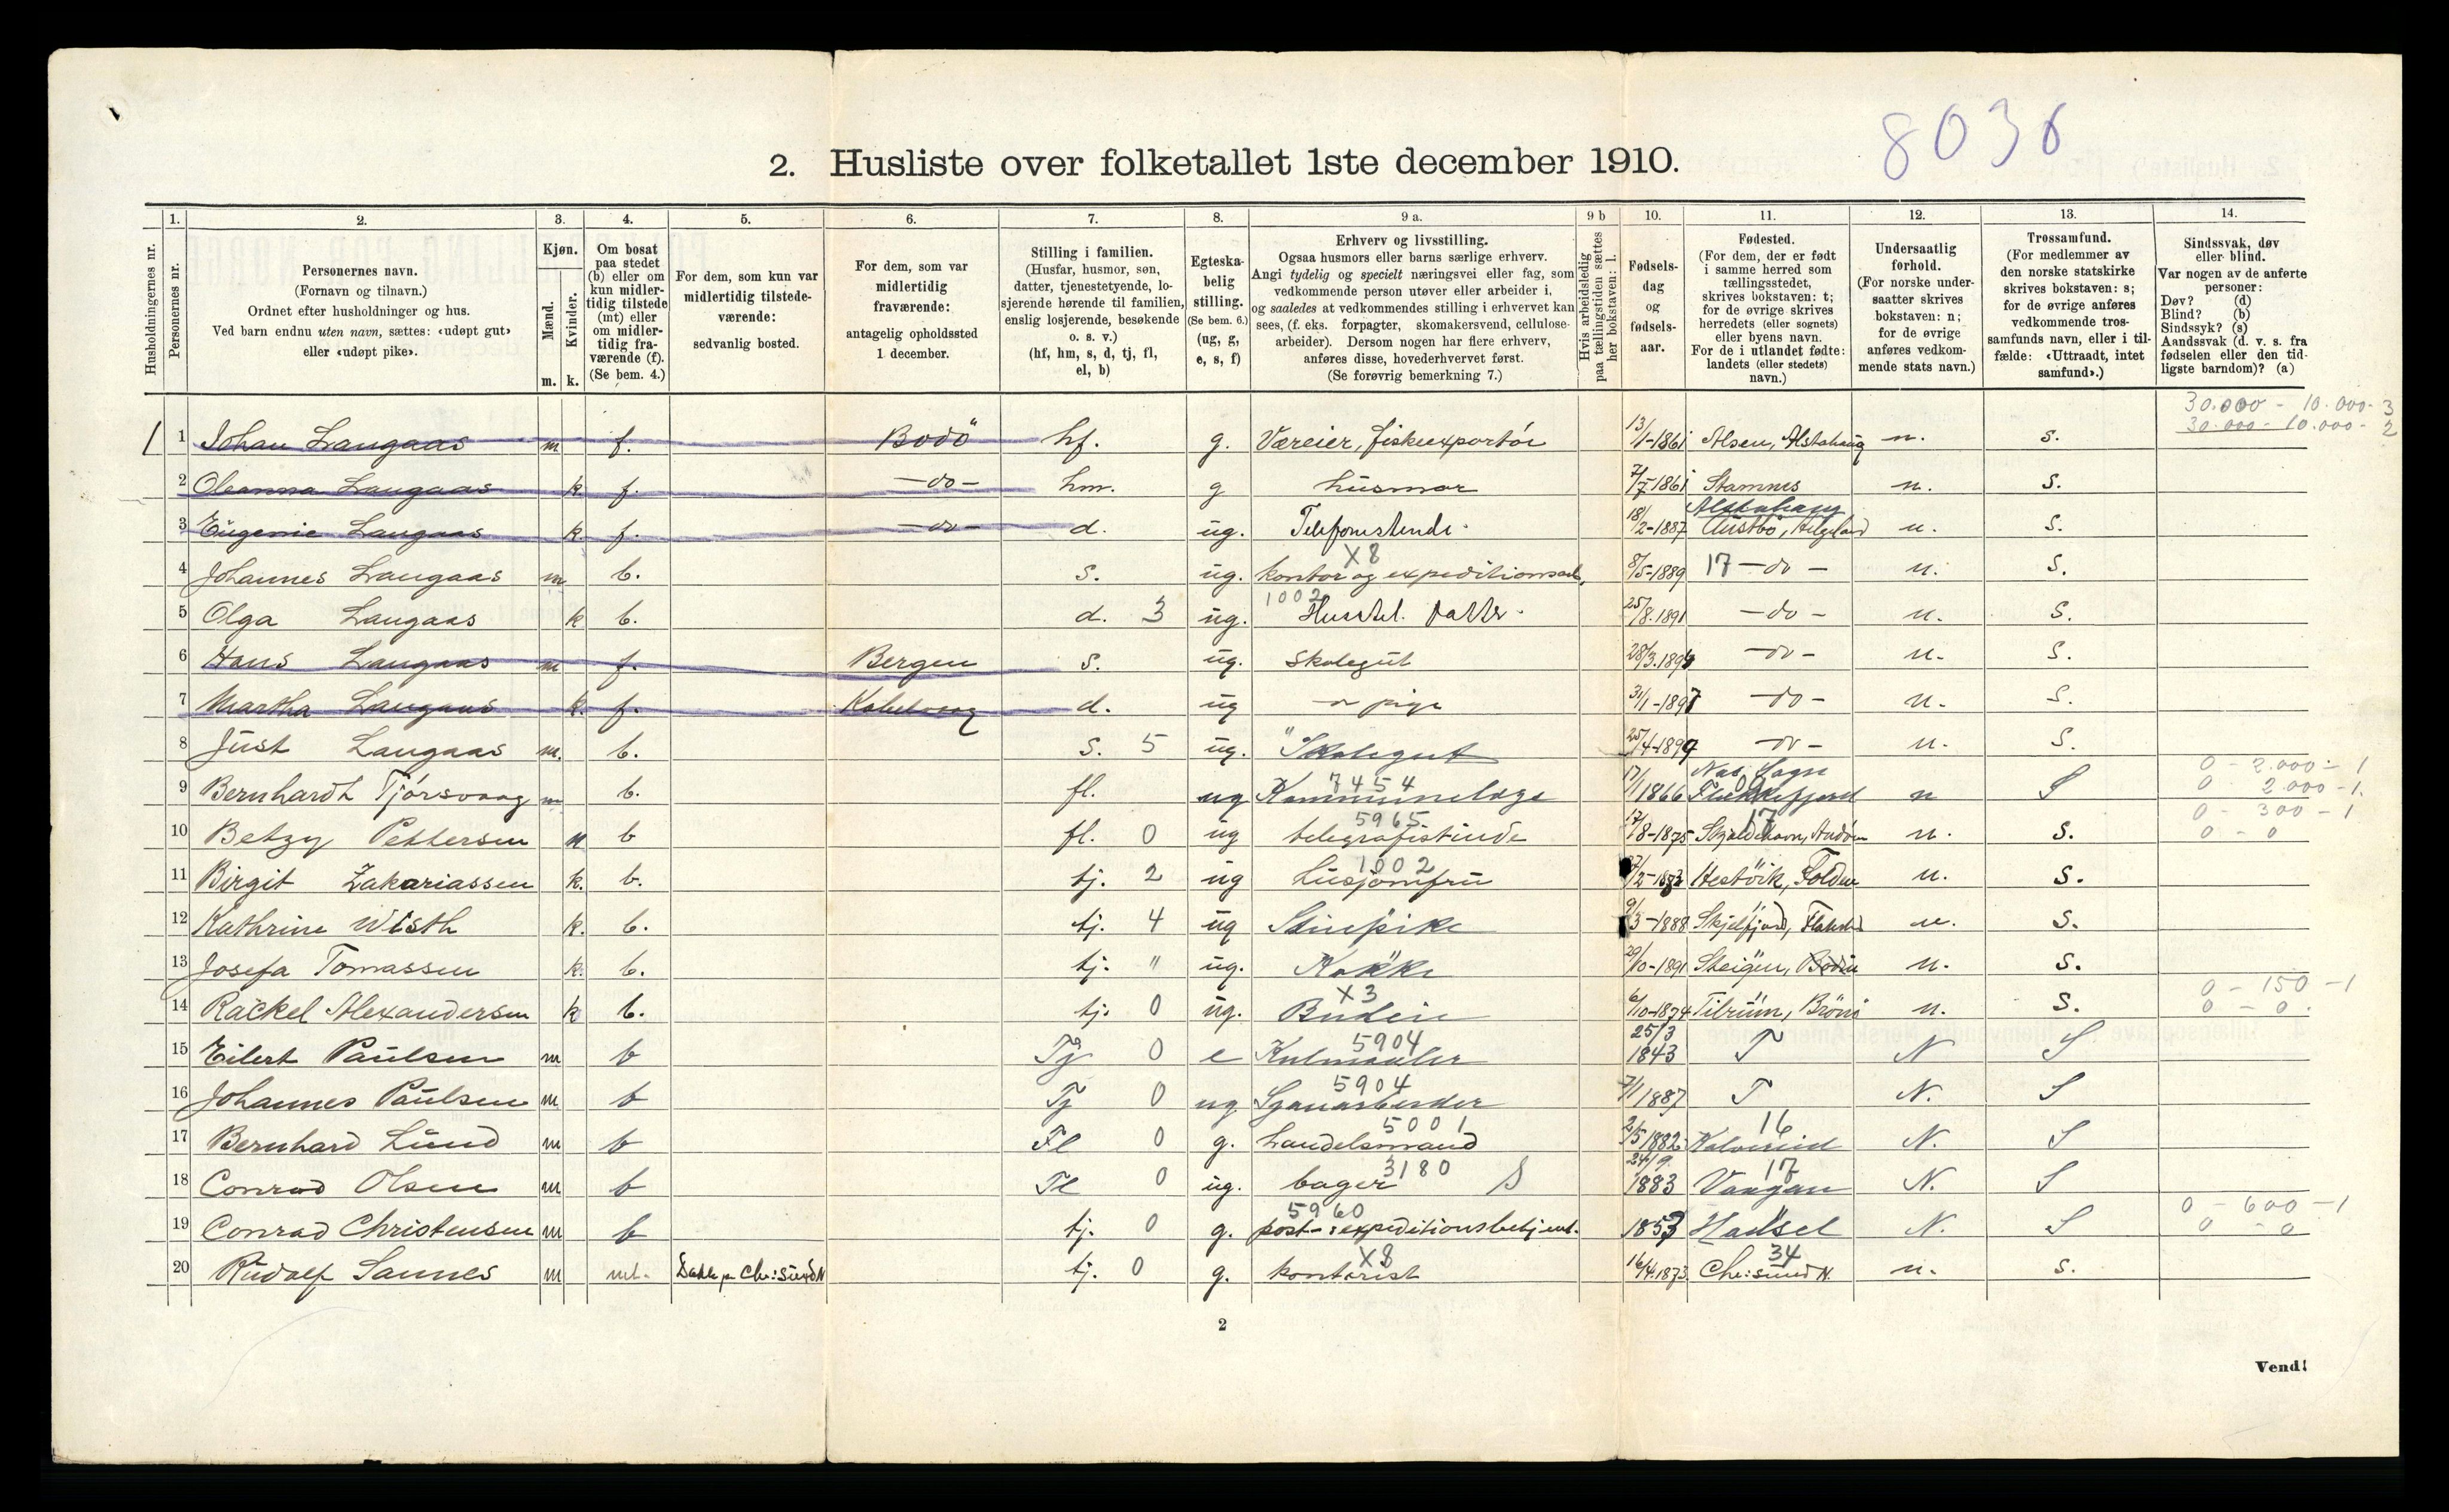 8036
2. Husliste over folketallet 1ste december 1910.
Husholdningernes nr.
1. Personernes nr.
2. Personernes navn. (Fornavn og tilnavn.) Ordnet efter husholdninger og hus. Ved barn endnu uten navn, sættes: «udøpt gut» eller «udøpt pike».
3. Kjøn. Mænd. Kvinder. m. k.
4. Om bosat paa stedet (b) eller om kun midler-tidig tilstede (mt) eller om midler-tidig fra-værende (f). (Se bem. 4.)
5. For dem, som kun var midlertidig tilstede-værende: sedvanlig bosted.
6. For dem, som var midlertidig fraværende: antagelig opholdssted 1 december.
7. Stilling i familien. (Husfar, husmor, søn, datter, tjenestetyende, lo-sjerende hørende til familien, enslig losjerende, besøkende o. s. v.) (hf, hm, s, d, tj, fl, el, b)
8. Egteska-belig stilling. (Se bem. 6.) (ug, g, e, s, f)
9 a. Erhverv og livsstilling. Ogsaa husmors eller barns særlige erhverv. Angi tydelig og specielt næringsvei eller fag, som vedkommende person utøver eller arbeider i, og saaledes at vedkommendes stilling i erhvervet kan sees, (f. eks. forpagter, skomakersvend, cellulose-arbeider). Dersom nogen har flere erhverv, anføres disse, hovederhvervet først. (Se forøvrig bemerkning 7.)
9 b Hvis arbeidsledig paa tællingstiden sættes her bokstaven: l.
10. Fødsels-dag og fødsels-aar.
11. Fødested. (For dem, der er født i samme herred som tællingsstedet, skrives bokstaven: t; for de øvrige skrives herredets (eller sognets) eller byens navn. For de i utlandet fødte: landets (eller stedets) navn.)
12. Undersaatlig forhold. (For norske under-saatter skrives bokstaven: n; for de øvrige anføres vedkom-mende stats navn.)
13. Trossamfund. (For medlemmer av den norske statskirke skrives bokstaven: s; for de øvrige anføres vedkommende tros-samfunds navn, eller i til-fælde: «Uttraadt, intet samfund».)
14. Sindssvak, døv eller blind. Var nogen av de anførte personer: Døv? (d) Blind? (b) Sindssyk? (s) Aandssvak (d. v. s. fra fødselen eller den tid-ligste barndom)? (a)
30.000 - 10.000 - 3
1 1 Johan Langaas m f. Bodö hf. g. Væreier, fiskeexportør 13/1-1861 Alsen, Alstahaug n. s. 30.000 - 10.000 - 2
2 Oleanna Langaas k. f. -do- hm. g husmor 7/7-1861 Stamnes n. s.
Alstahaug
3 Eugenie Langaas k f. -do- d. ug. Telefonistinde. 18/2-1887 Austbö, Helgeland n. s.
X8
4 Johannes Langaas m b. s. ug. kontor og expeditionsarb. 8/5-1889 17 -do- n. s.
1002
5 Olga Langaas k b. d. 3 ug. Hustel. datter. 25/8.1891 -do- n. s.
6 Hans Langaas m f. Bergen s. ug. skolegut 28/3.1894 -do- n. s.
7 Martha Langaas k. f. Kabelvaag d. ug -"- pige 31/1-1897 -do- n. s.
8 Just Langaas m. b. s. 5 ug. Skolegut 25/4-1899 -do- n. s.
7454 Nas, Sogn 0 - 2.000 - 1
9 Bernhardt Tjörsvaag m b. fl. ug Kommunelæge 17/1 1866 Flekkefjord n S 0 2.000 - 1
5965 17 0 - 300 - 1
10 Betzy Pettersen k b fl. 0 ug telegrafistinde 17/8-1875 Skjoldehavn, Andöen n. s. 0 - 0
1002
11 Birgit Zakariassen k. b. tj. 2 ug husjomfru /2-1883 Hestvik, Folden n. s.
12 Kathrine Wisth k. b. tj. 4 ug Stuepike 9/3-1888 Skjelfjord, Flakstad n. s.
13 Josefa Tomassen k. b. tj. " ug. Kokke 20/10-1891 Steigen, Bodin n. s.
X3 0 - 150 - 1
14 Rackel Alexandersen k b. tj. 0 ug. Budeie 6/10-1874 Tilrum, Brönö n. s. 0 - 0.
5904 25/3
15 Eilert Paulsen m b Tj 0 e Kulmaaler 1843 T N S
5904
16 Johannes Paulsen m b Tj 0 ug Sjauarbeider 7/1 1887 T N. S
5001 16
17 Bernhard Lund m b Fl 0 g. handelsmand 2/5 1882 N. S
3180 24/9. 17
18 Conrad Olsen m b Fl 0 ug. bager S 1883 Vaagan N. S
5960 0 - 600 - 1
19 Conrad Christensen m b tj. 0 g. post-expeditionsbetjent. 1853 Hadsel N. S 0 - 0
X8 34
20 Rudolf Sannes m mt. Dahle pr Chr:sund N tj. 0 g. kontorist 16/4.1873. Chr:sund N. n. s.
2
Vend!